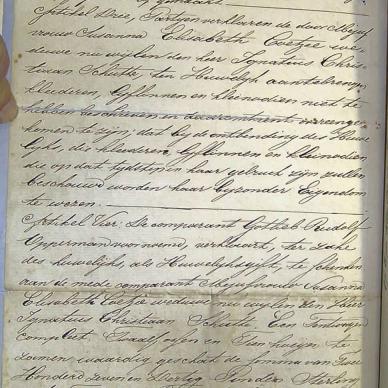 Artikel Drie, Partyen verklaaren de door Mejuf
vrouw Susanna Elisabeth Coetzee we,
deuwe nu wijlen den heer Ignatius Chris
tiaan Schutte, ten Huwelyk aantebrengen
kleederen, en kleinodien niet te
hebben beschreven en daaromtrent overeenge
komen te zijn; dat by de ontbinding des Huwe
lyks, de kleederen, en kleinodien
die op dat tijdstip in haar gebruik zijn zullen
beschouwd worden haar byzonder Eigendom
te wezen.
Artikel Vier: De comparant Gotlieb Rudolf
Opperman voornoemd, verklaart, ter zake
des huwelijks, als Huwelyksgift, te schenken
aan de mede comparant Mejufvrouw Susanna
Elisabeth Coetzee weduwe nu wylen den Heer
Ignatius Christiaan Schutte, Een Tentwagen
compleet, Twaalf ossen en Tien te
zamen, waardig geschat de somma van Twee
Honderd Zeven en Dertig Ponden Sterling